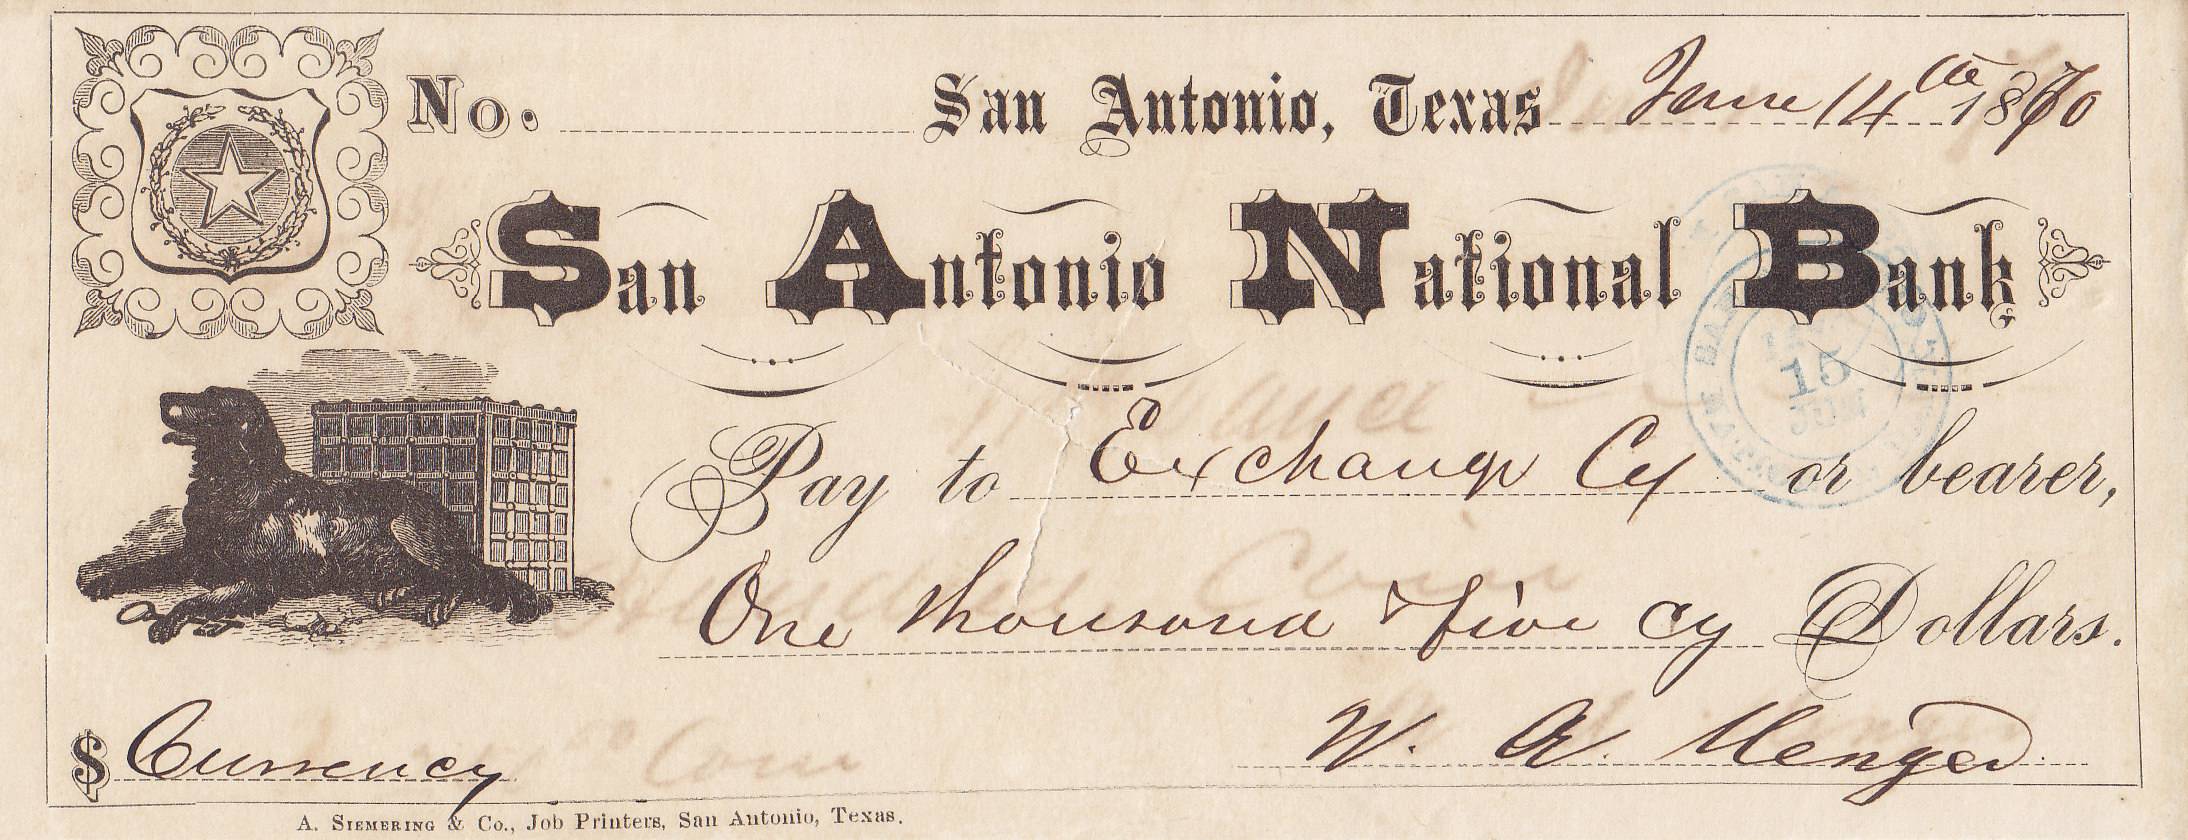 No. San Antonio, Texas June 14th 1870
San Antonio National Bank
15
JUN
Pay to Exchange Cy or bearer,
One thousand & five cy Dollars.
$ Currency
W. A. Menger
A. SIEMERING & Co., Job Printers, San Antonio, Texas.